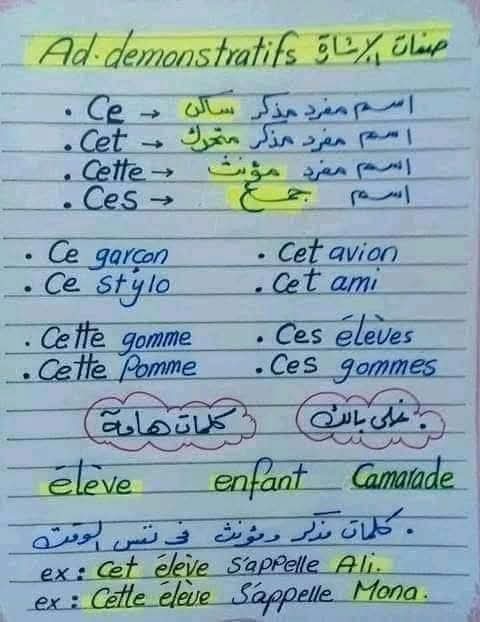 Ad. demonstratifs صفات الإشارة
. Ce → اسم مفرد مذكر ساكن
. Cet → اسم مفرد مذكر متحرك
. Cette → اسم مفرد مؤنث
. Ces → اسم جمع
. Ce garçon . Cet avion
. Ce stylo . Cet ami
. Cette gomme . Ces élèves
. Cette Pomme . Ces gommes
. خلى بالك كلمات هامة
élève enfant Camarade
. كلمات مذكر ومؤنث فى نفس الوقت
ex : Cet élève s'appelle Ali.
ex : Cette élève s'appelle Mona.